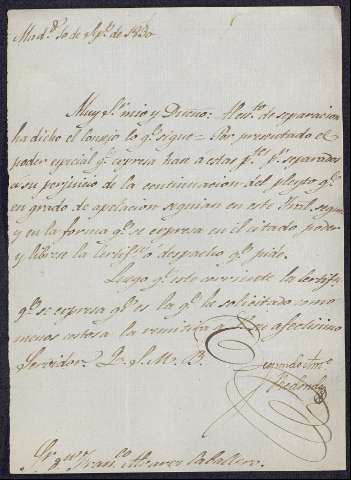 Mad.d 10 de Ag.to de 1830
Muy S.r mio y Dueño: Al esc.to de separacion
ha dicho el Consejo lo q.e sigue = Por presentado el
poder especial q.e expresa han á estas p.tes p.r separados
a su perjuicio de la continuacion del pleyto q.e
en grado de apelacion seguian en este Tral. segun
y en la forma q.e se expresa en el citado poder
y librese la Certif.on ó despacho q.e pide.
Luego q.e esté corriente la Certif.on
q.e se expresa q.e es la q.e he solicitado como
menos costosa la remitirá a V. su afectisimo
Servidor Q. S. M. B.
Redondo
S.r D.n Fran.co Alvarez Caballero.